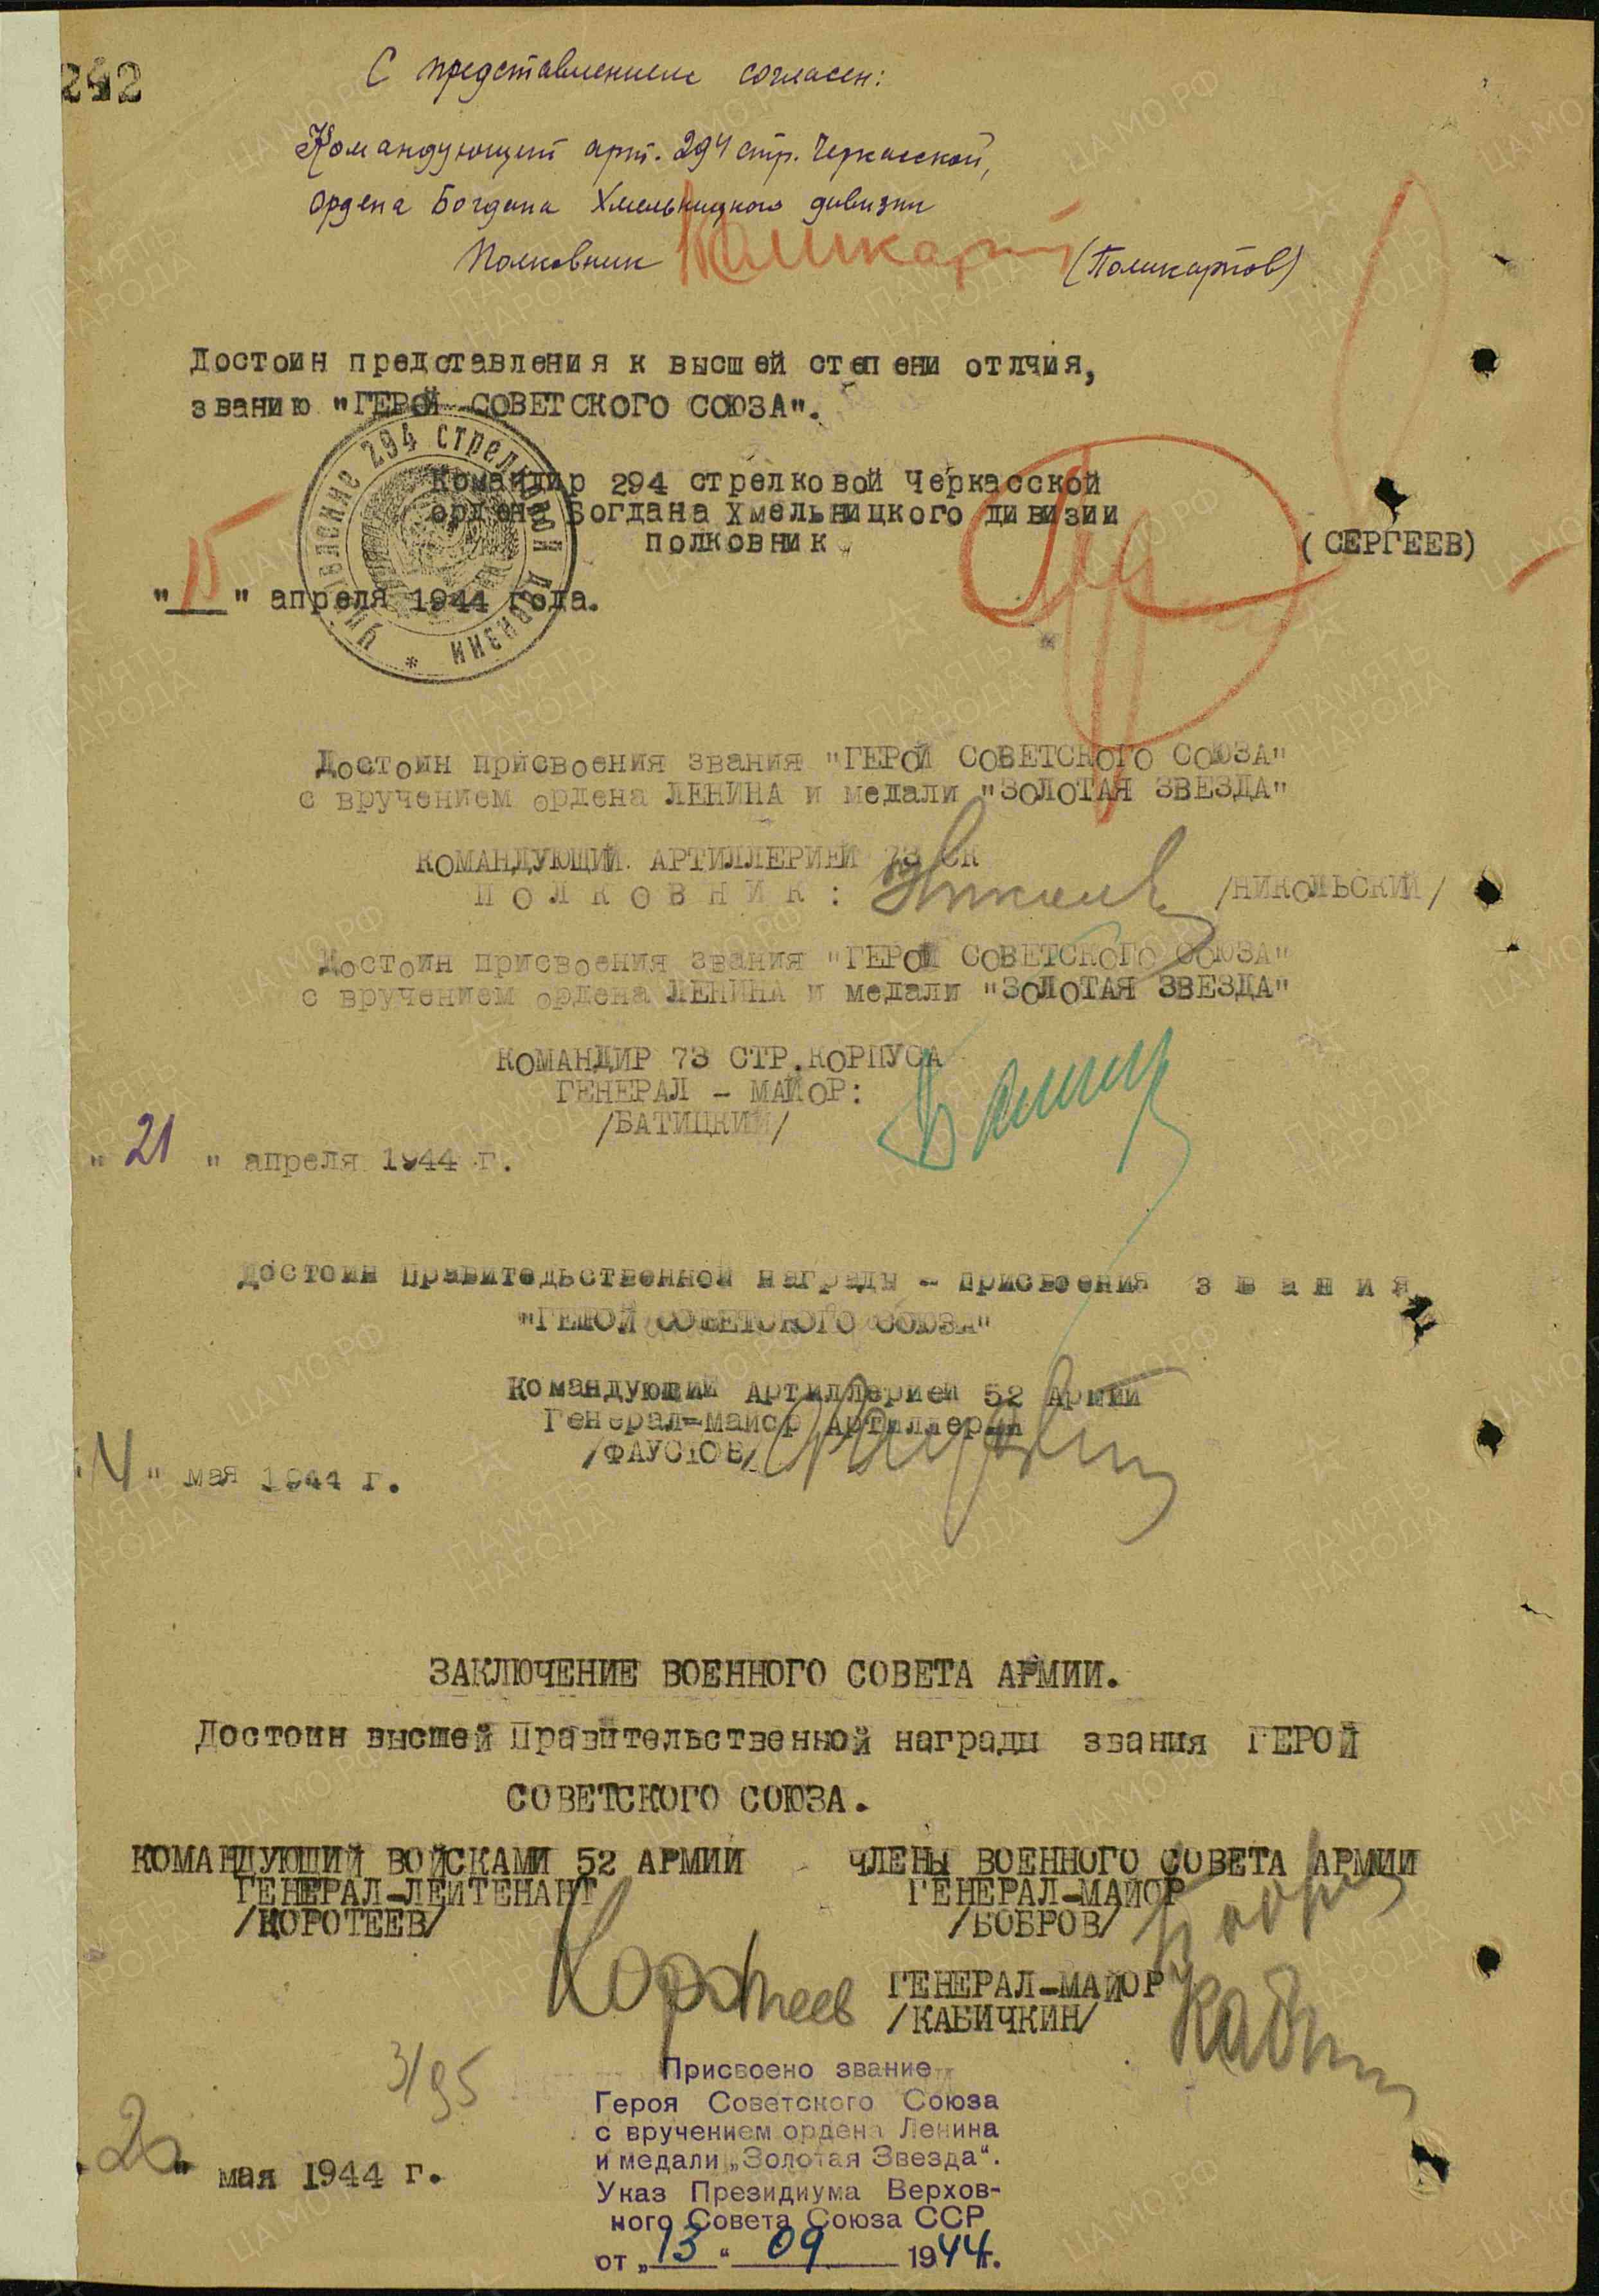 242
С представлением согласен:
Командующий арт. 294 стр. Черкасской,
ордена Богдана Хмельницкого дивизии
Полковник Поликарп (Поликарпов)
Достоин представления к высшей степени отлчия,
званию "ГЕРОЙ СОВЕТСКОГО СОЮЗА".
Командир 294 стрелковой Черкасской
ордена Богдана Хмельницкого дивизии
полковник (СЕРГЕЕВ)
"15" апреля 1944 года.
Управление 294 стрелковой дивизии *
Достоин присвоения звания "ГЕРОЙ СОВЕТСКОГО СОЮЗА"
с вручением ордена ЛЕНИНА и медали "ЗОЛОТАЯ ЗВЕЗДА"
КОМАНДУЮЩИЙ АРТИЛЛЕРИЕЙ 73 СК
ПОЛКОВНИК: /НИКОЛЬСКИЙ/
Достоин присвоения звания "ГЕРОЙ СОВЕТСКОГО СОЮЗА"
с вручением ордена ЛЕНИНА и медали "ЗОЛОТАЯ ЗВЕЗДА"
КОМАНДИР 73 СТР.КОРПУСА
ГЕНЕРАЛ - МАЙОР:
/БАТИЦКИЙ/
"21" апреля 1944 г.
Достоин Правительственной награды - присвоения звания
"ГЕРОЙ СОВЕТСКОГО СОЮЗА"
Командующий Артиллерией 52 Армии
Генерал-майор Артиллерии
/ФАУСТОВ/
"4" мая 1944 г.
ЗАКЛЮЧЕНИЕ ВОЕННОГО СОВЕТА АРМИИ.
Достоин высшей Правительственной награды звания ГЕРОЙ
СОВЕТСКОГО СОЮЗА.
КОМАНДУЮЩИЙ ВОЙСКАМИ 52 АРМИИ ЧЛЕНЫ ВОЕННОГО СОВЕТА АРМИИ
ГЕНЕРАЛ-ЛЕЙТЕНАНТ ГЕНЕРАЛ-МАЙОР
/КОРОТЕЕВ/ /БОБРОВ/
Коротеев ГЕНЕРАЛ-МАЙОР
/КАБИЧКИН/
3/95
Присвоено звание
Героя Советского Союза
с вручением ордена Ленина
и медали „Золотая Звезда“.
Указ Президиума Верхов-
ного Совета Союза ССР
от „13“ 09 1944г.
мая 1944 г.
ПАМЯТЬ НАРОДА
ЦА МО.РФ